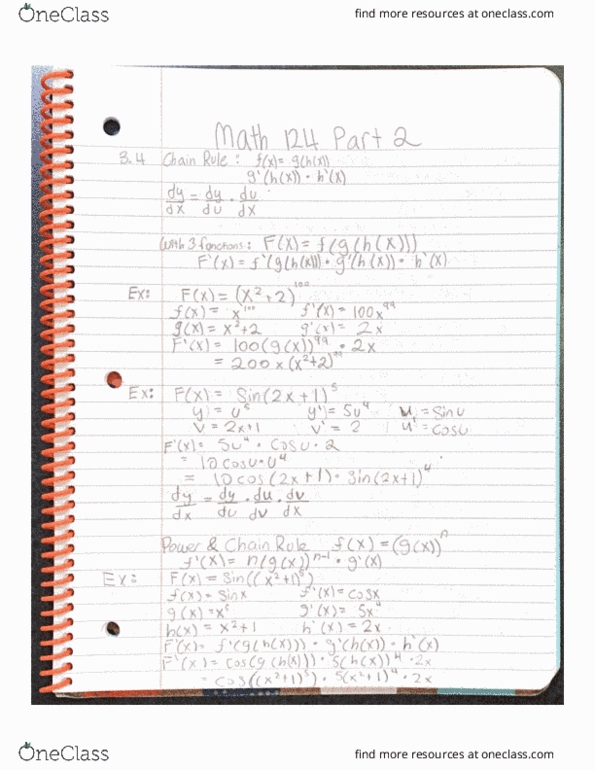 OneClass find more resources at oneclass.com
Math 124 Part 2
3.4 Chain Rule: f(x)= g(h(x))
g'(h(x)) • h'(x)
dy/dx = dy/du • du/dx
(With 3 functions: F(x) = f(g(h(x)))
F'(x) = f'(g(h(x))) • g'(h(x)) • h'(x)
Ex: F(x) = (x²+2)¹⁰⁰
f(x) = x¹⁰⁰ f'(x) = 100x⁹⁹
g(x) = x²+2 g'(x) = 2x
F'(x) = 100(g(x))⁹⁹ • 2x
= 200x(x²+2)⁹⁹
Ex: F(x) = Sin(2x+1)⁵
y = u⁵ y' = 5u⁴ u = Sin u
v = 2x+1 v' = 2 u' = cos u
F'(x) = 5u⁴ • Cos u • 2
= 10 cos u • u⁴
= 10 cos(2x+1) • Sin(2x+1)⁴
dy/dx = dy/du • du/dv • dv/dx
Power & Chain Rule f(x) = (g(x))ⁿ
f'(x) = n(g(x))ⁿ⁻¹ • g'(x)
Ex: F(x) = Sin((x²+1)⁵)
f(x) = Sin x f'(x) = cos x
g(x) = x⁵ g'(x) = 5x⁴
h(x) = x²+1 h'(x) = 2x
F'(x) = f'(g(h(x))) • g'(h(x)) • h'(x)
F'(x) = cos(g(h(x))) • 5(h(x))⁴ • 2x
= cos((x²+1)⁵) • 5(x²+1)⁴ • 2x
OneClass find more resources at oneclass.com